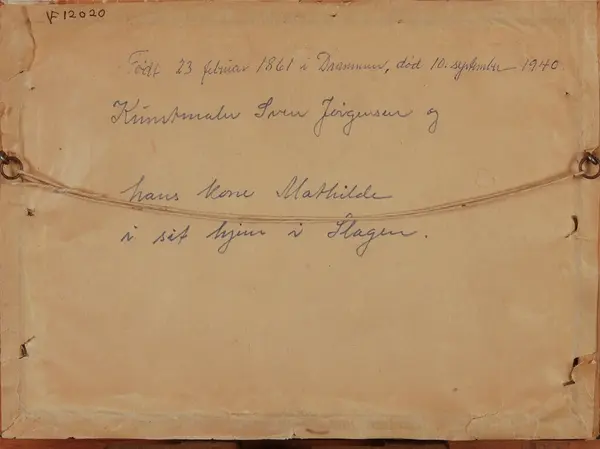 VF12020
Født 23 februar 1861 i Drammen, død 10. september 1940.
Kunstmaler Sven Jørgensen og
hans kone Mathilde
i sit hjem i Slagen.